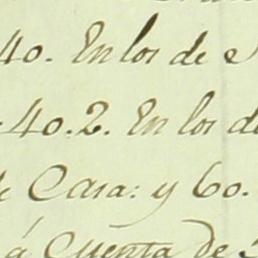 40. En los de
40.2. En los de
de Casa: y 60.
á Cuenta de